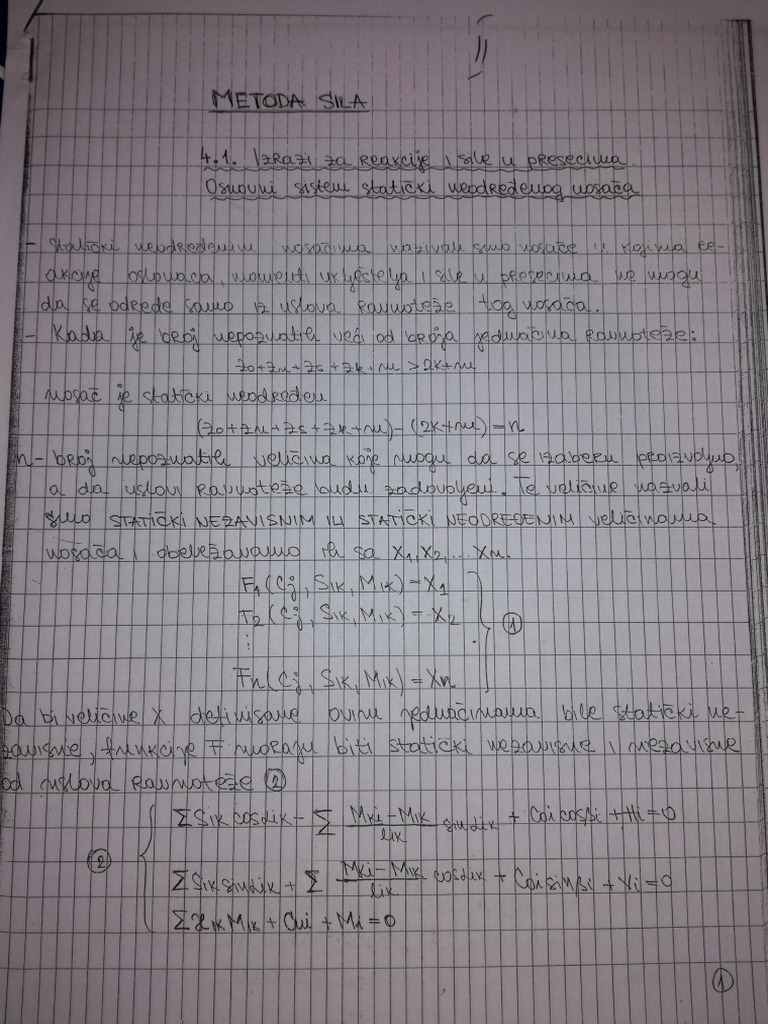 II
METODA SILA
4.1. Izrazi za reakcije i sile u presecima
Osnovni sistem statički neodređenog nosača
- Statički neodređenim nosačima nazivali smo nosače u kojima re-
akcije oslonaca, momenti uklještenja i sile u presecima ne mogu
da se odrede samo iz uslova ravnoteže tog nosača.
- Kada je broj nepoznatih veći od broja jednačina ravnoteže:
zo+zu+zs+zk+m > 2k+m
nosač je statički neodređen
(zo+zu+zs+zk+m) - (2k+m) = n
n - broj nepoznatih veličina koje mogu da se izaberu proizvoljno,
a da uslovi ravnoteže budu zadovoljeni. Te veličine nazvali
smo STATIČKI NEZAVISNIM ILI STATIČKI NEODREĐENIM veličinama
nosača i obeležavamo ih sa X1, X2, ... Xn.
F1 (Cj, Sik, Mik) = X1
F2 (Cj, Sik, Mik) = X2
⋮
Fn (Cj, Sik, Mik) = Xn
①
Da bi veličine X definisane ovim jednačinama bile statički ne-
zavisne, funkcije F moraju biti statički nezavisne i nezavisne
od uslova ravnoteže ②
② ΣSik cosαik - Σ (Mki - Mik)/lik sinαik + Coi cosβi + Hi = 0
ΣSik sinαik + Σ (Mki - Mik)/lik cosαik + Coi sinβi + Vi = 0
ΣϰikMik + Cui + Mi = 0
①